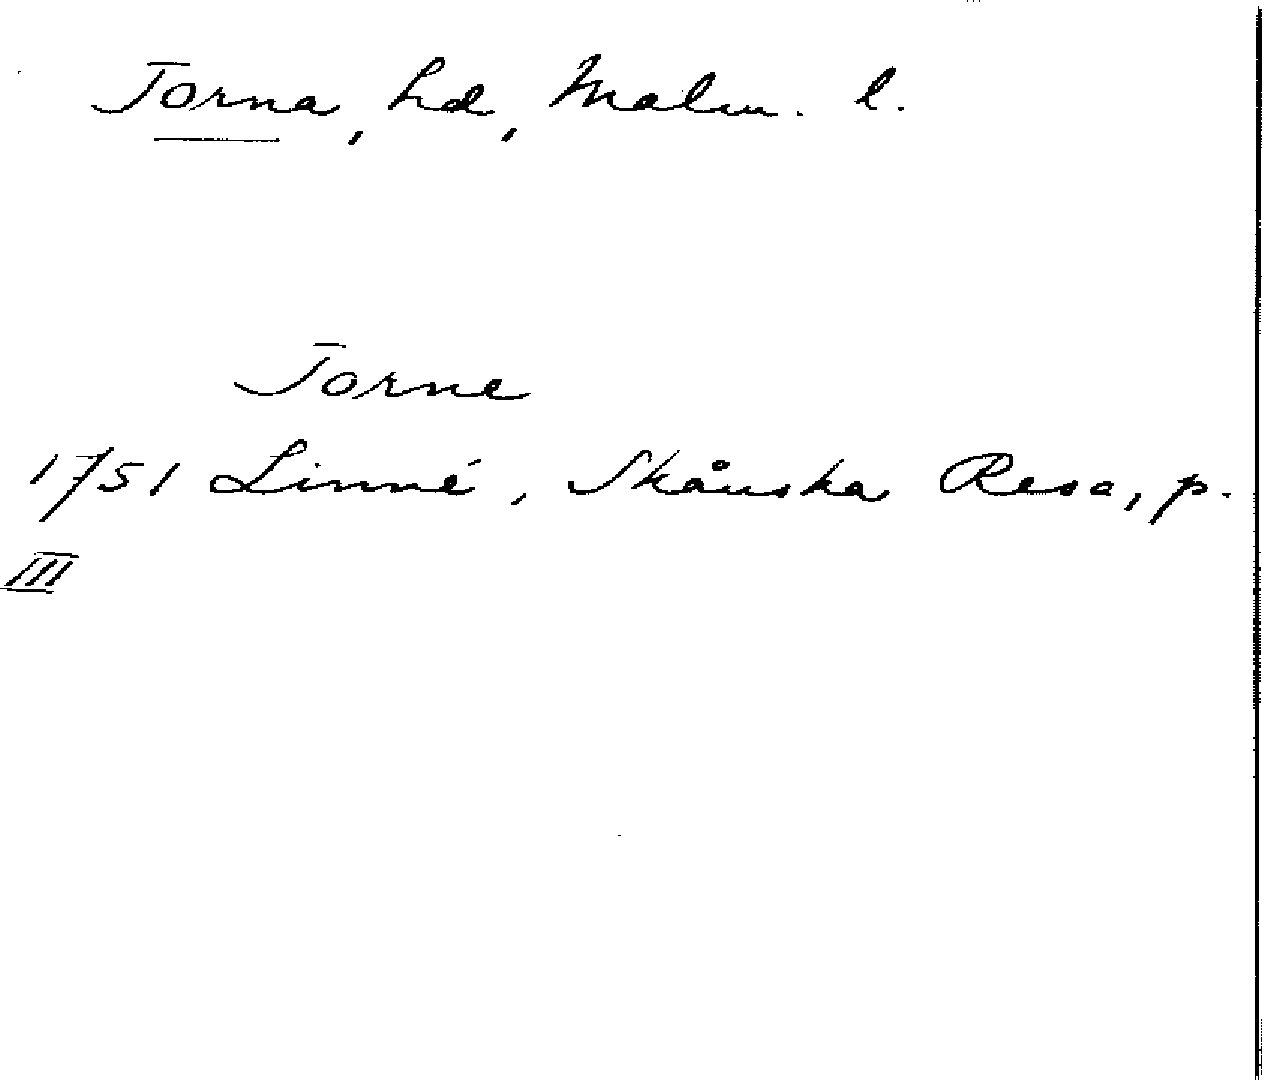 Torna, hd, Malm. l.
Torne
1751 Linné, Skånska Resa, p.
III